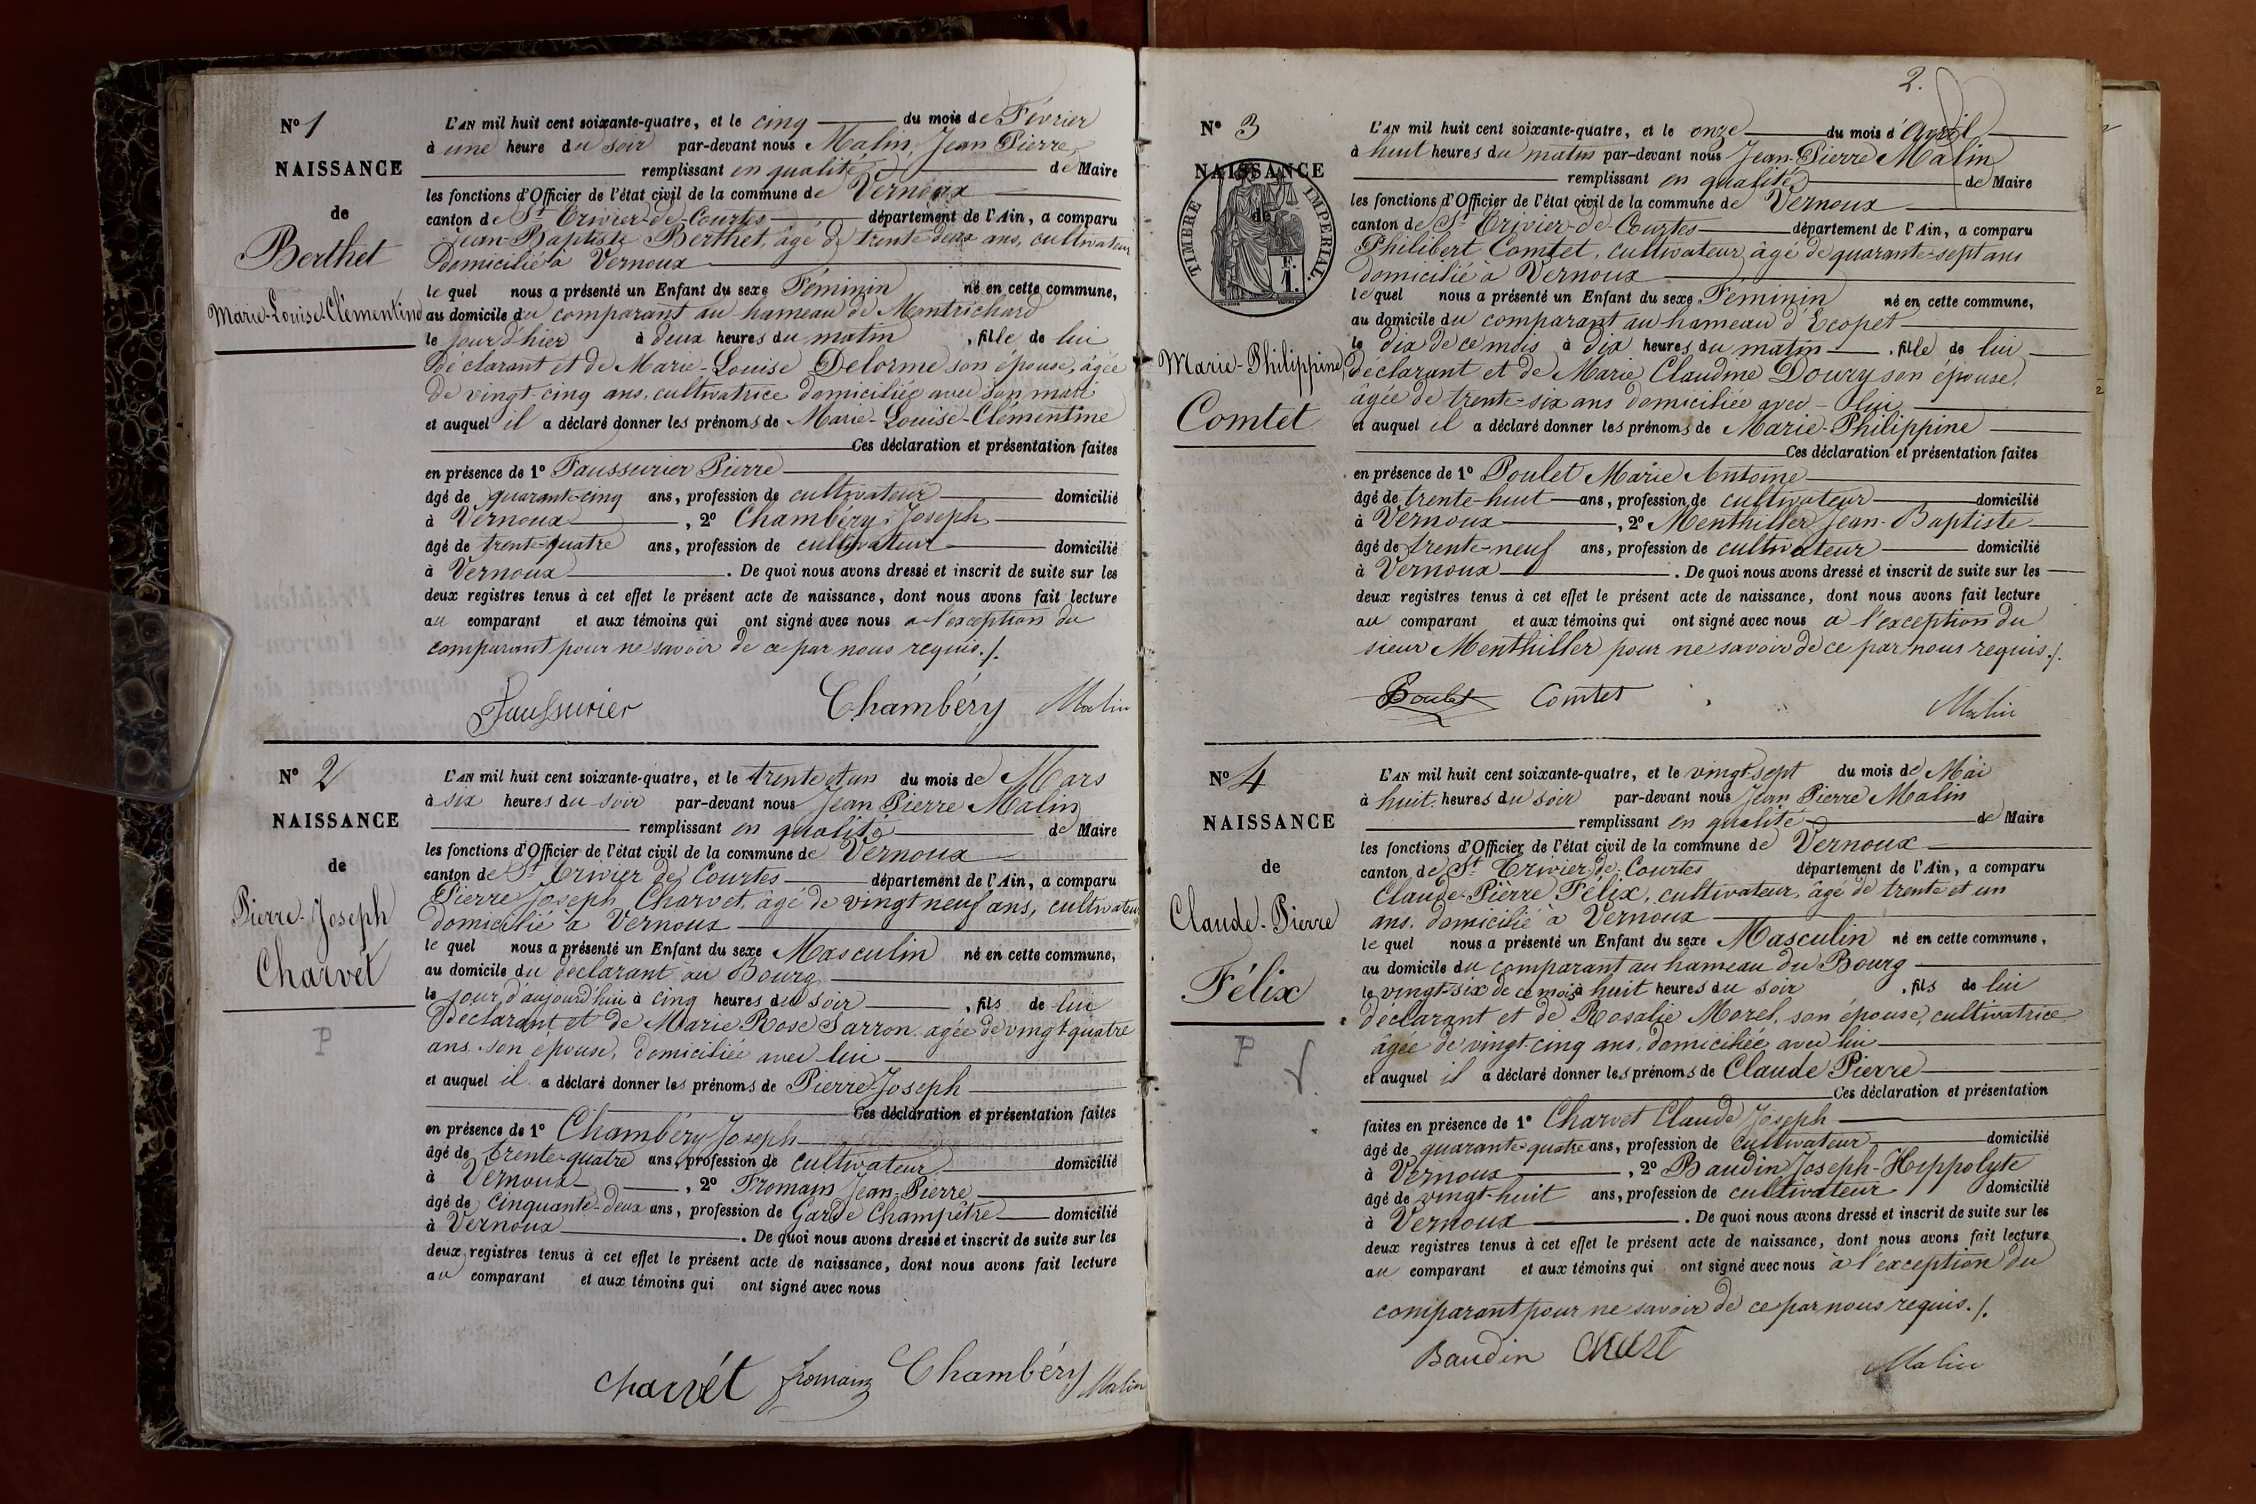 N° 1
NAISSANCE
de
Berthet
Marie-Louise-Clémentine
L'AN mil huit cent soixante-quatre, et le cinq du mois de Février
à une heure du soir par-devant nous Malin, Jean Pierre
remplissant en qualité de Maire
les fonctions d'Officier de l'état civil de la commune de Vernoux
canton de St Trivier-de-Courtes département de l'Ain, a comparu
Jean-Baptiste Berthet, âgé de trente deux ans, cultivateur
domicilié à Vernoux
le quel nous a présenté un Enfant du sexe Féminin né en cette commune,
au domicile du comparant au hameau de Montrichard
le jour d'hier à deux heures du matin, fille de lui
déclarant et de Marie-Louise Delorme son épouse, âgée
de vingt-cinq ans, cultivatrice domiciliée avec son mari
et auquel il a déclaré donner les prénoms de Marie-Louise-Clémentine
Ces déclaration et présentation faites
en présence de 1° Faussurier Pierre
âgé de quarante-cinq ans, profession de cultivateur domicilié
à Vernoux, 2° Chambéry, Joseph
âgé de trente-quatre ans, profession de cultivateur domicilié
à Vernoux. De quoi nous avons dressé et inscrit de suite sur les
deux registres tenus à cet effet le présent acte de naissance, dont nous avons fait lecture
au comparant et aux témoins qui ont signé avec nous à l'exception du
comparant pour ne savoir de ce par nous requis./.
Faussurier Chambéry Malin
N° 2
NAISSANCE
de
Pierre-Joseph
Charvet
P
L'AN mil huit cent soixante-quatre, et le trente et un du mois de Mars
à six heures du soir par-devant nous Jean Pierre Malin
remplissant en qualité de Maire
les fonctions d'Officier de l'état civil de la commune de Vernoux
canton de St Trivier de Courtes département de l'Ain, a comparu
Pierre Joseph Charvet, âgé de vingt neuf ans, cultivateur
domicilié à Vernoux
le quel nous a présenté un Enfant du sexe Masculin né en cette commune,
au domicile du déclarant au Bourg
le jour d'aujourd'hui à cinq heures du soir, fils de lui
déclarant et de Marie Rose Sarron âgée de vingt quatre
ans son épouse, domiciliée avec lui
et auquel il a déclaré donner les prénoms de Pierre-Joseph
Ces déclaration et présentation faites
en présence de 1° Chambéry Joseph
âgé de trente-quatre ans, profession de cultivateur domicilié
à Vernoux, 2° Fromain Jean Pierre
âgé de cinquante-deux ans, profession de Garde Champêtre domicilié
à Vernoux. De quoi nous avons dressé et inscrit de suite sur les
deux registres tenus à cet effet le présent acte de naissance, dont nous avons fait lecture
au comparant et aux témoins qui ont signé avec nous
charvét fromain Chambéry Malin
2.
N° 3
NAISSANCE
de
TIMBRE IMPERIAL.
Marie-Philippine
Comtet
L'AN mil huit cent soixante-quatre, et le onze du mois d'Avril
à huit heures du matin par-devant nous Jean-Pierre Malin
remplissant en qualité de Maire
les fonctions d'Officier de l'état civil de la commune de Vernoux
canton de St Trivier-de-Courtes département de l'Ain, a comparu
Philibert Comtet, cultivateur, âgé de quarante-sept ans
domicilié à Vernoux
le quel nous a présenté un Enfant du sexe Féminin né en cette commune,
au domicile du comparant au hameau d'Ecopet
le dix de ce mois à dix heures du matin, fille de lui
déclarant et de Marie Claudine Doury son épouse,
âgée de trente-six ans domiciliée avec lui
et auquel il a déclaré donner les prénoms de Marie-Philippine
Ces déclaration et présentation faites
en présence de 1° Poulet Marie Antoine
âgé de trente-huit ans, profession de cultivateur domicilié
à Vernoux, 2° Menthiller Jean-Baptiste
âgé de trente-neuf ans, profession de cultivateur domicilié
à Vernoux. De quoi nous avons dressé et inscrit de suite sur les
deux registres tenus à cet effet le présent acte de naissance, dont nous avons fait lecture
au comparant et aux témoins qui ont signé avec nous à l'exception du
sieur Menthiller pour ne savoir de ce par nous requis./.
Poulet Comtet Malin
N° 4
NAISSANCE
de
Claude-Pierre
Félix
P
L'AN mil huit cent soixante-quatre, et le vingt-sept du mois de Mai
à huit heures du soir par-devant nous Jean Pierre Malin
remplissant en qualité de Maire
les fonctions d'Officier de l'état civil de la commune de Vernoux
canton de St Trivier-de-Courtes département de l'Ain, a comparu
Claude-Pierre Félix, cultivateur, âgé de trente et un
ans, domicilié à Vernoux
le quel nous a présenté un Enfant du sexe Masculin né en cette commune,
au domicile du comparant au hameau du Bourg
le vingt-six de ce mois à huit heures du soir, fils de lui
déclarant et de Rosalie Morel, son épouse, cultivatrice
âgée de vingt-cinq ans, domiciliée avec lui
et auquel il a déclaré donner les prénoms de Claude Pierre
Ces déclaration et présentation
faites en présence de 1° Charvet Claude Joseph
âgé de quarante-quatre ans, profession de cultivateur domicilié
à Vernoux, 2° Baudin Joseph-Hyppolyte
âgé de vingt-huit ans, profession de cultivateur domicilié
à Vernoux. De quoi nous avons dressé et inscrit de suite sur les
deux registres tenus à cet effet le présent acte de naissance, dont nous avons fait lecture
au comparant et aux témoins qui ont signé avec nous à l'exception du
comparant pour ne savoir de ce par nous requis./.
Baudin Malin